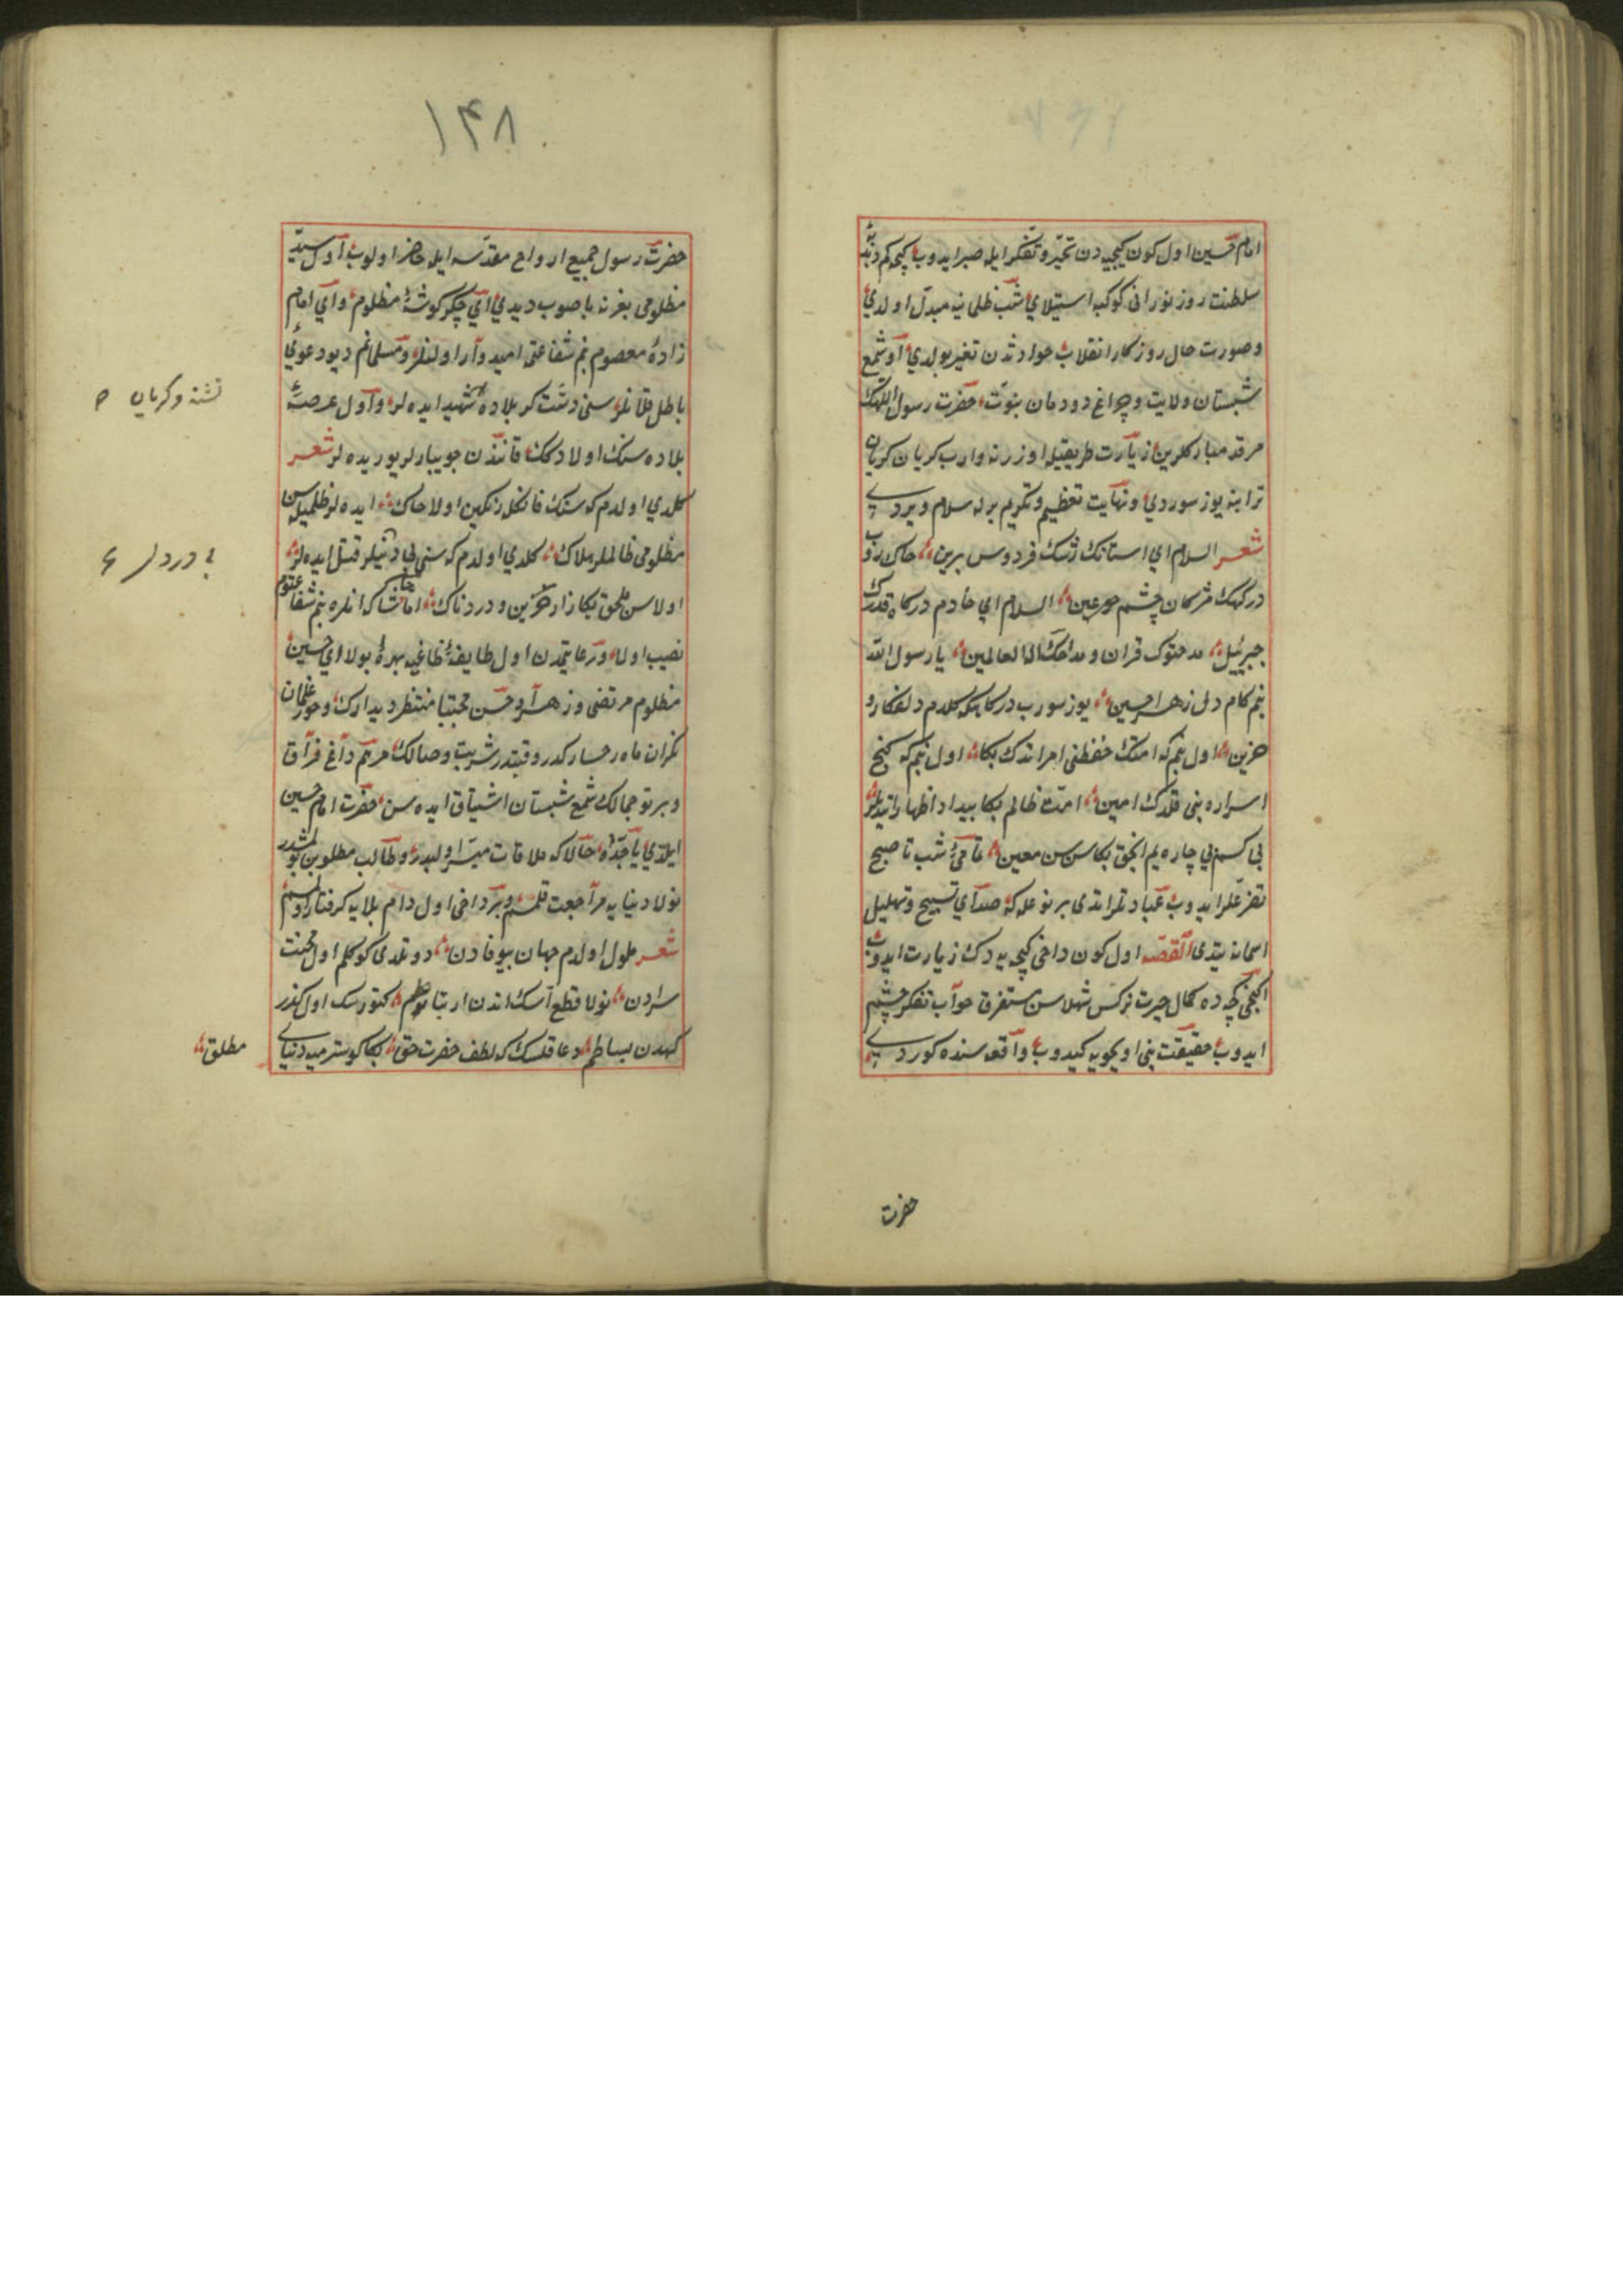 امام حسین اول کون کیجه‌دن تحیّر و تفکر ایله صبر ایدوب کیجه کم دبدبهٔ
سلطنت روز نورانی کوکب استیلای شب ظلمانیه مبدل اولدی
و صورت حال روزکار انقلاب حوادثدن تغیر بولدی او شمع
شبستان ولایت و چراغ دودمان نبوّت حضرت رسول اللهک
مرقد مبارکلرین زیارت طریقیله اوزرنه واروب کریان کریان
ترابنه یوز سوردی و نهایت تعظیم و تکریم برله سلام ویردی
شعر السلام ای استانک رشک فردوس برین خاک روب
درکهک مژکان چشم حور عین السلام ای خادم درکاه قدرک
جبرئیل مدحتوک قران و مداحک اله العالمین یا رسول الله
بنم کام دل زهرا حسین یوز سورب درکاهکه کلدم دلفکار و
حزین اول بنم که امتک حفظنی امر اتدک بکا اول بنم که کنج
اسراره بنی قلدک امین امت ظالم بکا بیداد اظهار اتدیلر
بی کسم بی چاره یم انجق بکا سن سن معین تا صبح
تضرعلر ایدوب عبادتلر اتدی بر نوعله که صدای تسبیح و تهلیل
اسمانه یتدی القصه اول کون داخی کیجه یه دک زیارت ایدوب
ایکنجی کیجه ده کمال حیرت نرکس شهلاسن مستغرق خواب تفکر چشم
ایدوب حقیقت بنی اویخویه کیدوب واقعه سنده کوردی
حضرت
۱۴۸
حضرت رسول جمیع ارواح مقدّسه ایله حاضر اولوب اول سید
مظلومی بغرنه باصوب دیدی ای جکر کوشهٔ مظلوم و ای امام
زادهٔ معصوم بنم شفاعتمه امیدوار اولنلر و مسلمانم دیو دعوی
باطل قلانلر سنی دشت کربلاده شهید ایده لر و اول عرصهٔ
بلاده سنک اولادکک قانندن جویبارلر یوریده لر شعر
کلدی اول دم که سنک قانکله رنکین اولا خاک ایده لر ظلمیله سن
مظلومی ظالملر هلاک کلدی اول دم که سنی قتل ایده لر
اولاسن ملحق بکا زار حزین و دردناک اما حاشا که انلره بنم شفاعتوم
نصیب اوله و رعایتمدن اول طایفهٔ طاغیه بهره بولا ای حسین
مظلوم مرتضی و زهرا و حسن مجتبا منتظر دیدارک و حور غلمان
نکران ماه رخسارکدر وقتیدر شربت وصالک مرهم داغ فراق
و پرتو جمالک شمع شبستان اشتیاق ایده سن حضرت امام حسین
ایلدی یا جدّاه حالا که ملاقات میسر اولبدر و طالب مطلوبن بولمشدر
نولا دنیایه مراجعت قلمسم و بر داخی اول دام بلایه کرفتار اولمسم
شعر ملول اولدم جهان بیوفادن دوتلدی کوکلم اول محنت
سرادن نولا قطع اتسک اندن ارتباطم کتورسک اول کذر
کهدن بساطم دعا قلسک که لطف حضرت حق بکا کوسترمیه دنیای
مطلق
تشنه و کریان